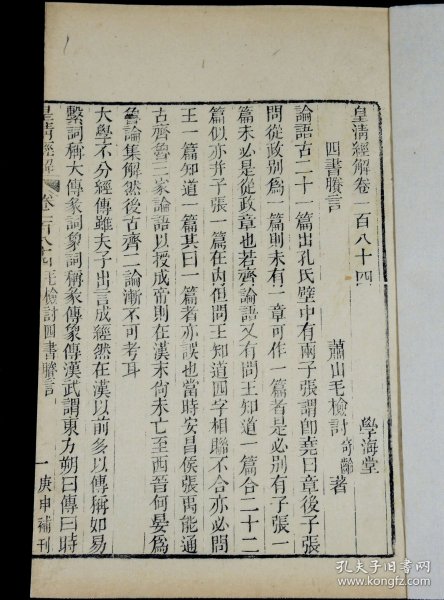 皇清經解卷一百八十四 學海堂
四書賸言 蕭山毛檢討奇齡著
論語古二十一篇出孔氏壁中有兩子張謂卽堯曰章後子張
問從政別爲一篇則未有一章可作一篇者是必別有子張一
篇未必是從政章也若齊論語又有問王知道一篇合二十二
篇似亦幷子張一篇在內但問王知道四字相聯不合亦必問
王一篇知道一篇其曰一篇者亦誤也當時安昌侯張禹能通
古齊魯三家論語以授成帝則在漢末尙未亡至西晉何晏爲
魯論集解然後古齊二論漸不可考耳
大學不分經傳雖夫子出言成經然在漢以前多以傳稱如易
繫詞稱大傳彖詞象詞稱彖傳象傳漢武謂東方朔曰傳曰時
皇清經解 卷一百八十四 毛檢討四書賸言 一 庚申補刊
孔夫子旧书网
www.kongfz.com